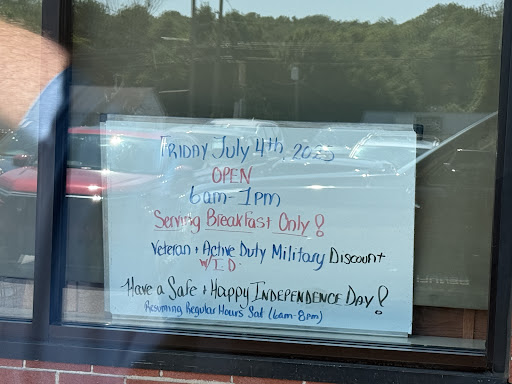 Friday July 4th, 2025
OPEN
6am-1pm
Serving Breakfast Only!
Veteran + Active Duty Military Discount
w/ I.D.
Have a Safe + Happy Independence Day!
Resuming Regular Hours Sat (6am-8pm)